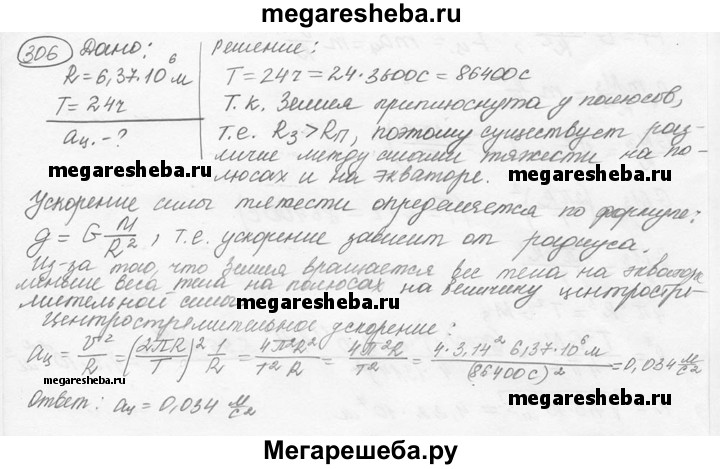 megaresheba.ru
306 Дано: Решение:
R = 6,37·10⁶ м T = 24ч = 24·3600с = 86400с
T = 24ч Т.к. Земля приплюснута у полюсов,
aц. - ? т.е. Rз > Rп, поэтому существует раз-
личие между силами тяжести на по-
megaresheba.ru люсах и на экваторе. megaresheba.ru
Ускорение силы тяжести определяется по формуле:
g = G M/R², т.е. ускорение зависит от радиуса.
Из-за того, что Земля вращается все тела на экваторе
меньше веса тела на полюсах на величину центростре-
мительной силы megaresheba.ru
центростремительное ускорение:
aц = v²/R = (2πR/T)² 1/R = 4π²R²/T²R = 4π²R/T² = 4·3,14² 6,37·10⁶м/(86400с)² = 0,034 м/с²
megaresheba.ru
Ответ: aц = 0,034 м/с² megaresheba.ru
Мегарешеба.ру